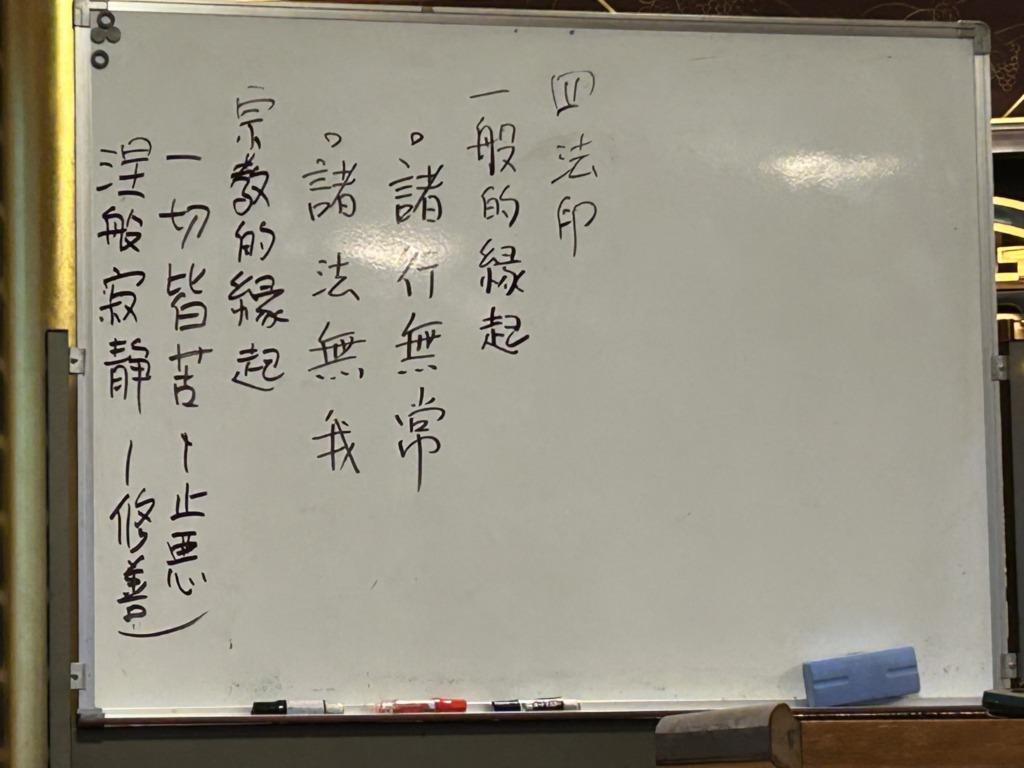 四法印
一般的縁起
。諸行無常
。諸法無我
宗教的縁起
一切皆苦ー止悪
涅般寂静ー修善